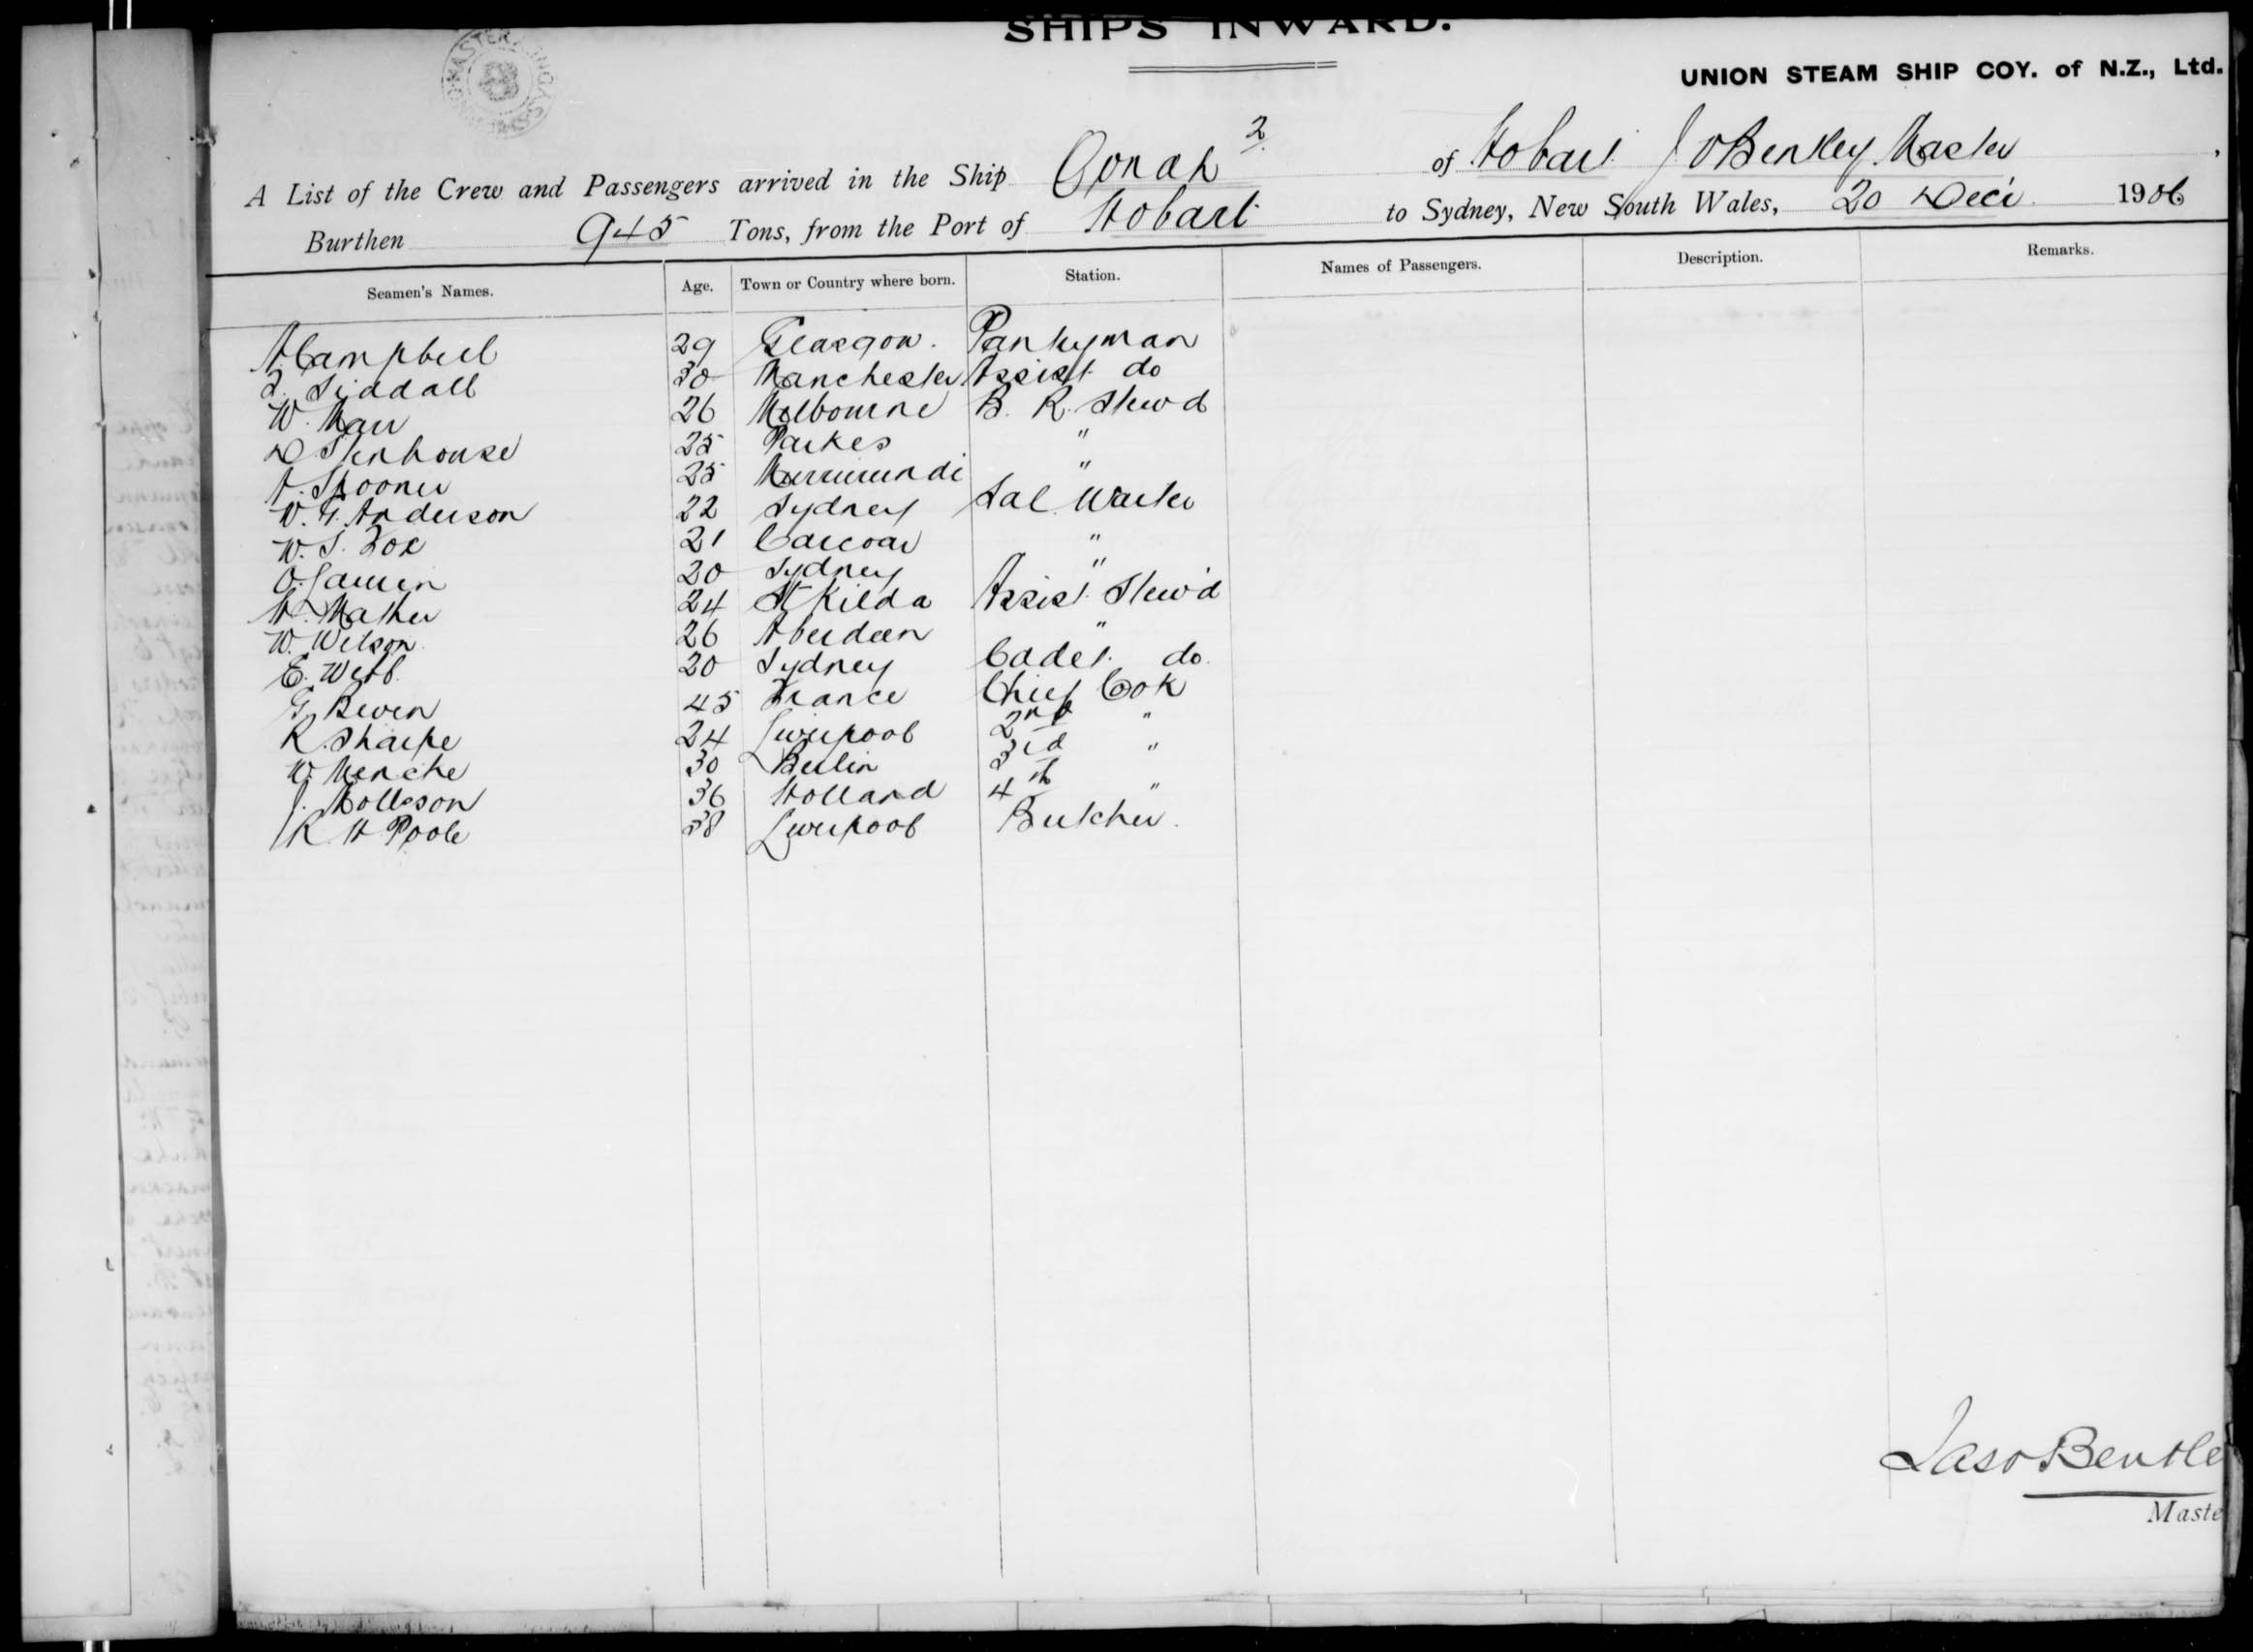 SHIPS INWARD.
UNION STEAM SHIP COY. of N.Z., Ltd.
A List of the Crew and Passengers arrived in the Ship Oonah 2 of Hobart J O Bentley Master,
Burthen 945 Tons, from the Port of Hobart to Sydney, New South Wales, 20 Dec'r 1906
Seamen's Names. Age. Town or Country where born. Station. Names of Passengers. Description. Remarks.
A Campbell 29 Glasgow. Pantryman
Siddall 30 Manchester Assist do
W. Marr 26 Melbourne B. R. Stew'd
D Stenhouse 25 Parkes "
A. Spooner 25 Murrurundi "
W. G. Anderson 22 Sydney Sal Waiter
W. S. Fox 21 Carcoar "
O. 20 Sydney "
Mather 24 St Kilda Assist Stew'd
W. Wilson 26 Aberdeen "
E. Webb. 20 Sydney Cadet do.
G. Beven 45 France Chief Cook
R. Sharpe 24 Liverpool 2nd "
W. Menche 30 Berlin 3rd "
J. Mollsson 36 Holland 4th "
R H Poole 38 Liverpool Butcher.
Jas O Bentle
Maste